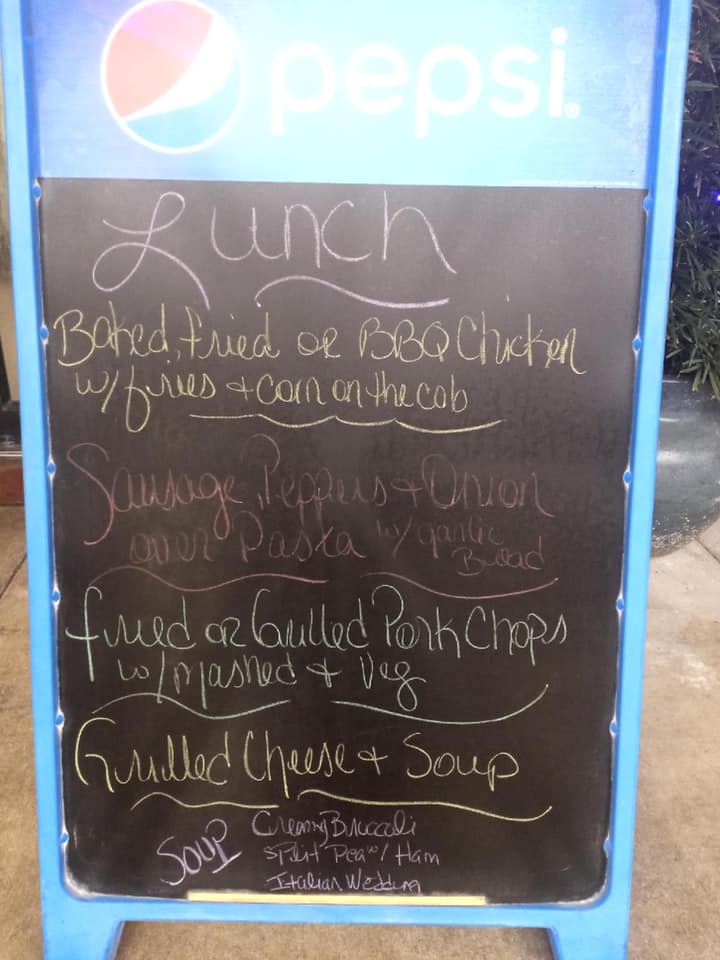 pepsi.
Lunch
Baked, fried or BBQ Chicken
w/ fries + corn on the cob
Sausage, Peppers + Onion
over Pasta w/ garlic
Bread
fried or Grilled Pork Chops
w/ mashed + Veg
Grilled Cheese + Soup
Soup
Creamy Broccoli
Split Pea w/ Ham
Italian Wedding